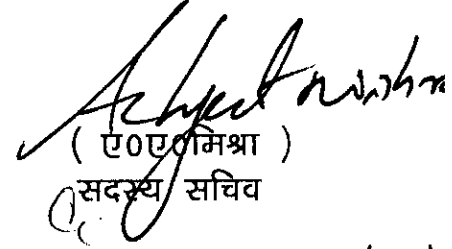 ( ए0ए0मिश्रा )
सदस्य सचिव